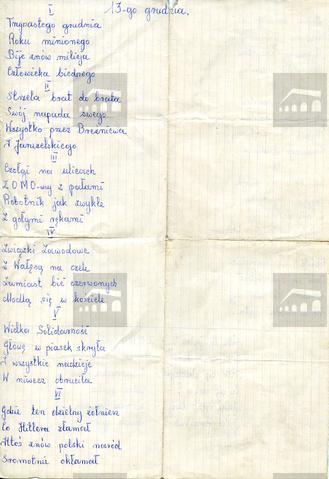 13-go grudnia.
I
Trzynastego grudnia
Roku minionego
Bije znów milicja
Człowieka biednego
II
Strzela brat do brata
Swój napada swego
Wszystko przez Breżniewa
I Jaruzelskiego
III
Czołgi na ulicach
ZOMO-wcy z pałami
Robotnik jak zwykle
Z gołymi rękami
IV
Związki Zawodowe
Z Wałęsą na czele
Zamiast bić czerwonych
Modlą się w kościele
V
Wielka Solidarność
Głowę w piasek skryła
I wszystkie nadzieje
W niwecz obróciła
VI
Gdzie ten dzielny żołnierz
Co Hitlera złamał
Ktoś znów polski naród
Sromotnie okłamał